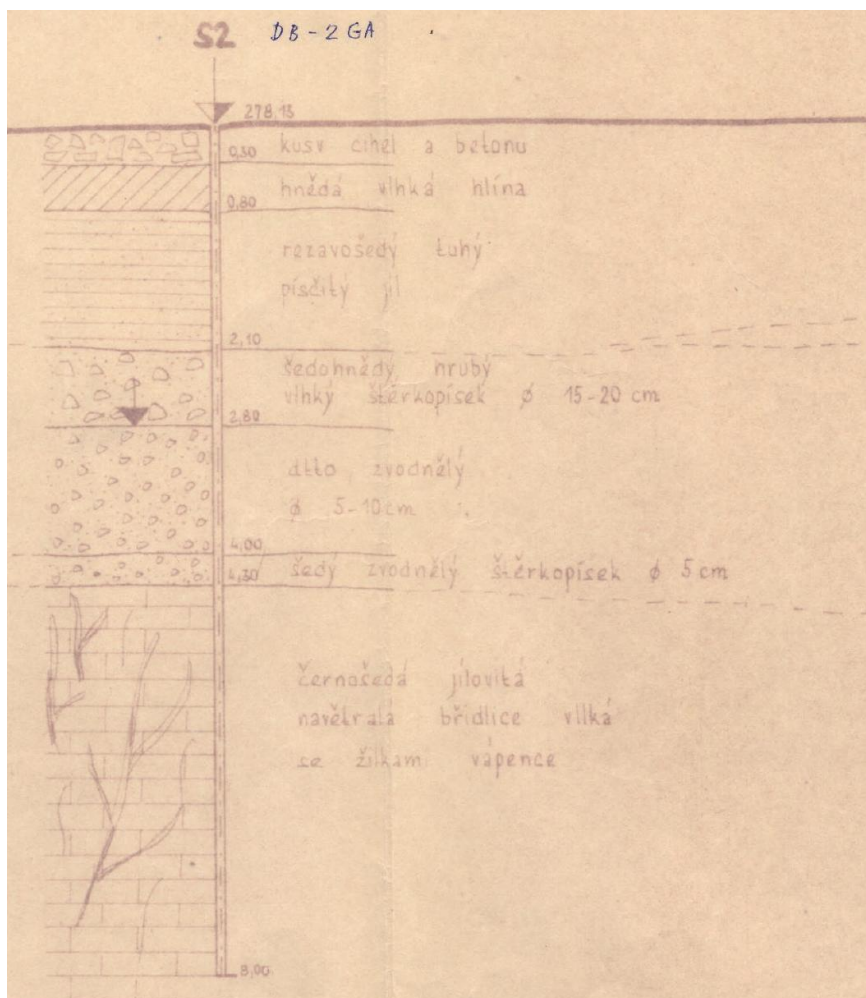 S2 DB-2 GA
278,13
0,30 kusy cihel a betonu
hnědá vlhká hlína
0,80
rezavošedý tuhý
písčitý jíl
2,10
šedohnědý hrubý
vlhký štěrkopísek ϕ 15-20 cm
2,80
dtto zvodnělý
ϕ 5-10 cm
4,00
4,30 šedý zvodnělý štěrkopísek ϕ 5 cm
černošedá jílovitá
navětralá břidlice vlhká
se žilkami vápence
8,00